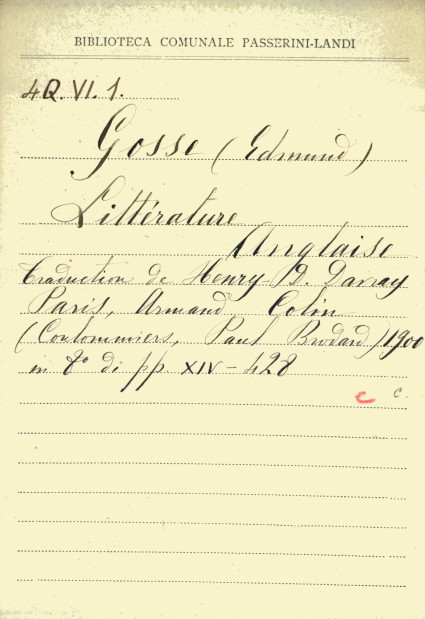 BIBLIOTECA COMUNALE PASSERINI-LANDI
4Q. VI. 1.
Gosse (Edmund)
Littérature
Anglaise
Traduction de Henry D. Davray
Paris, Armand Colin
(Coulommiers, Paul Brodard) 1900
in 8º di pp XIV-428
c c.